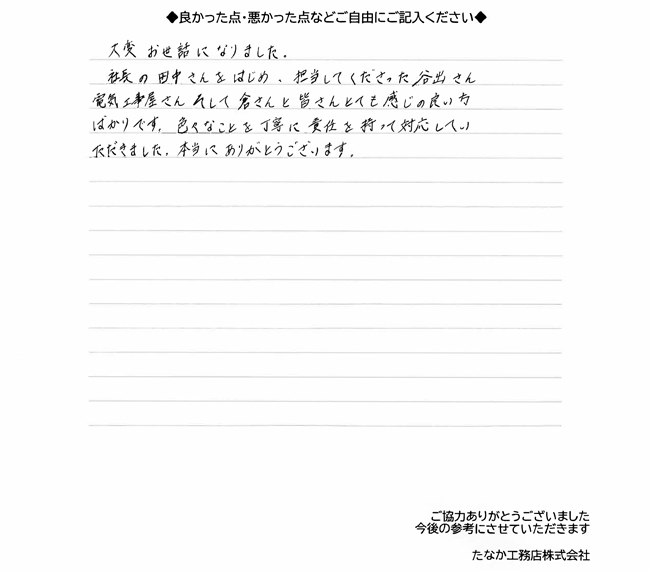 ◆良かった点・悪かった点などご自由にご記入ください◆
大変 お世話になりました。
社長の田中さんをはじめ、担当してくださった谷出さん
電気工事屋さん そして倉さんと皆さんとても感じの良い方
ばかりです。色々なことを丁寧に責任を持って対応してい
ただきました。本当にありがとうございます。
ご協力ありがとうございました
今後の参考にさせていただきます
たなか工務店株式会社